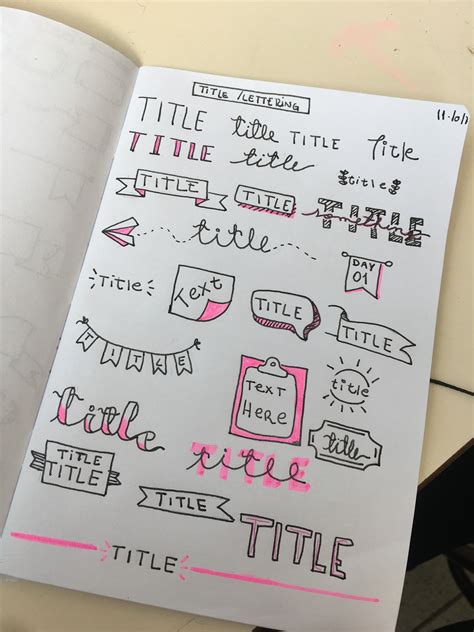 TITLE / LETTERING
TITLE title TITLE Title
TITLE title
title
TITLE TITLE TITLE
something
title
DAY
01
Title
Text
TITLE
TITLE
title
TEXT
HERE
title
title
TITLE
title
TITLE
TITLE
TITLE
TITLE
TITLE